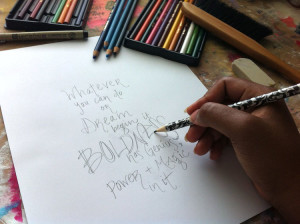 Whatever
you can do
or
Dream
begin it
BOLDNESS
has Genius
Power + Magic
in it